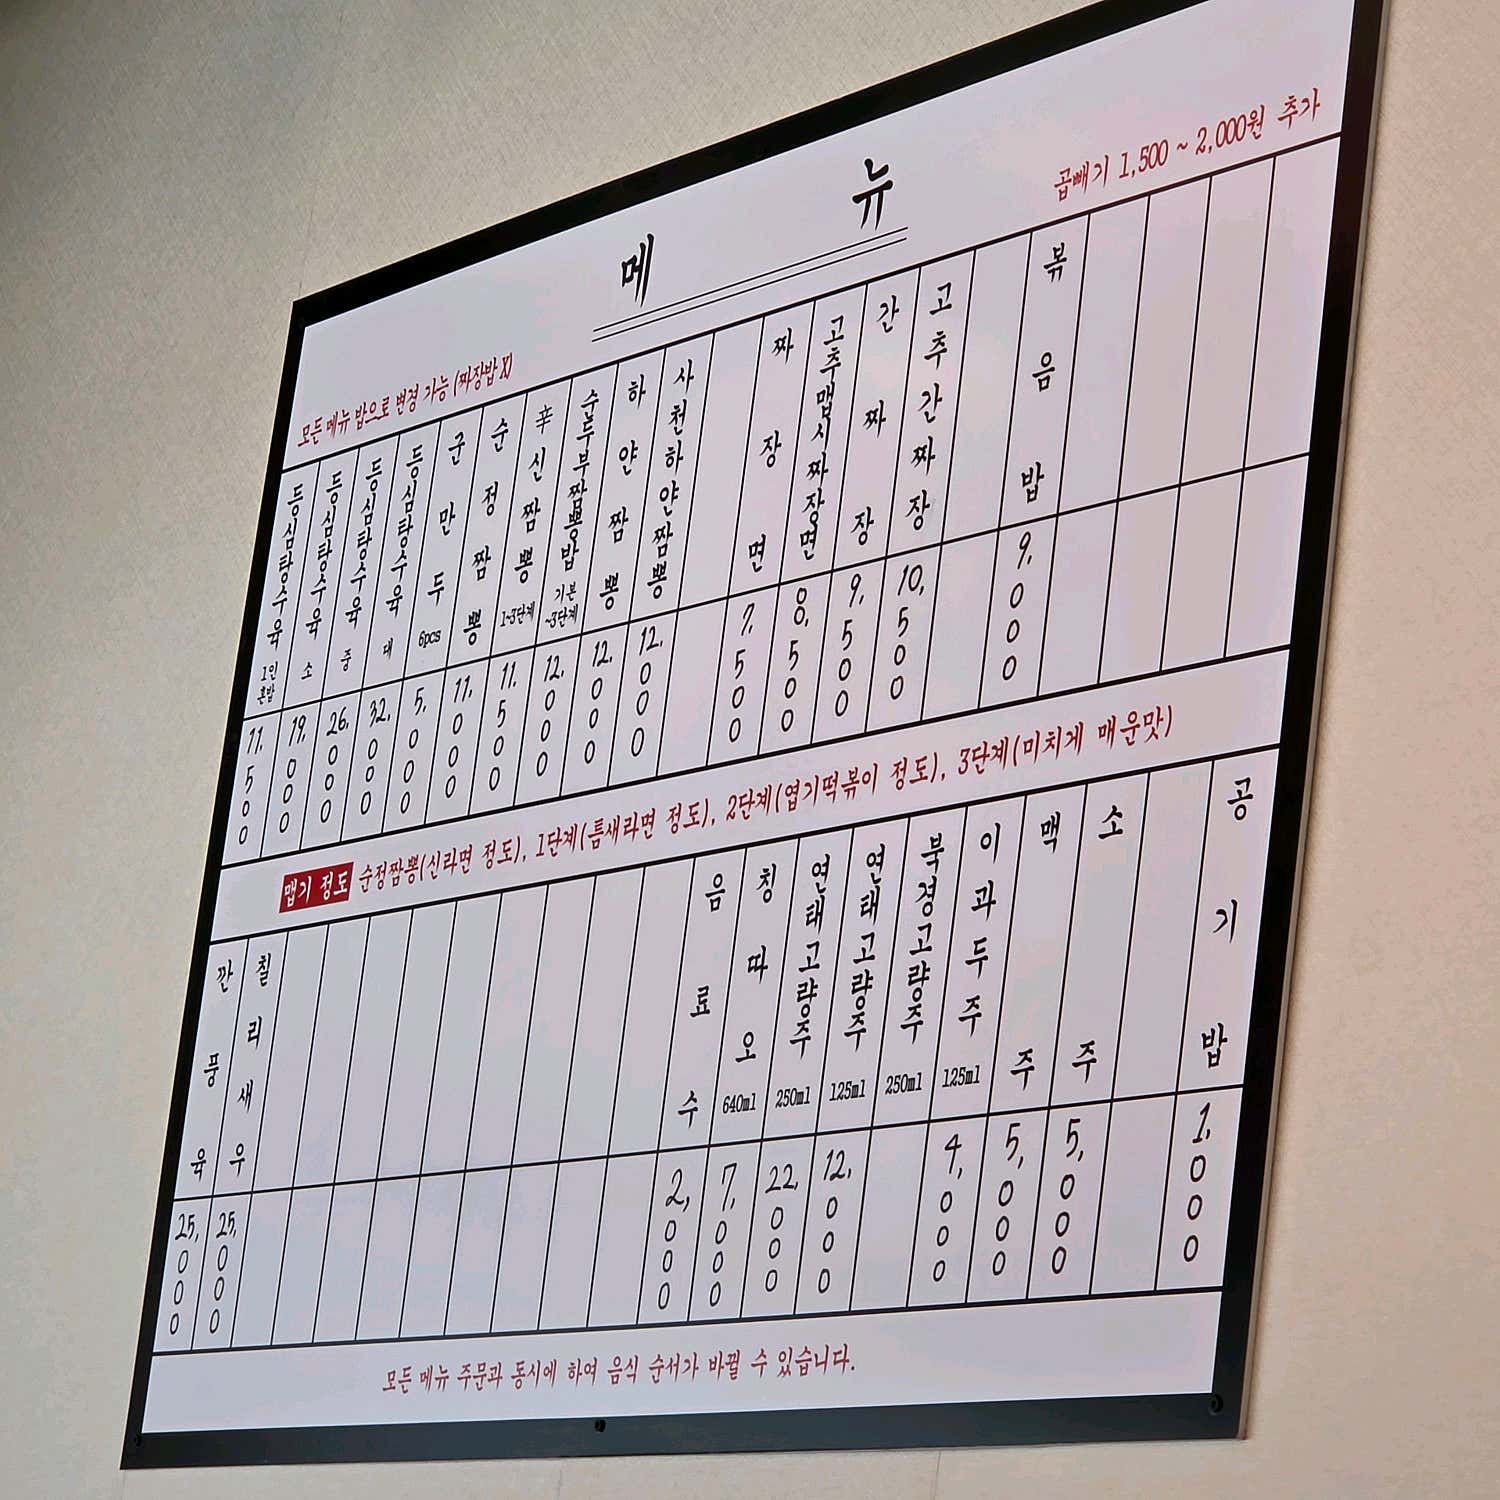 메 뉴
모든 메뉴 밥으로 변경 가능 (짜장밥 X)
곱빼기 1,500 ~ 2,000원 추가
등심탕수육 1인 혼밥 11,500
등심탕수육 소 19,000
등심탕수육 중 26,000
등심탕수육 대 32,000
군만두 6pcs 5,000
순정짬뽕 11,000
辛신짬뽕 1~3단계 11,500
순두부짬뽕밥 기본~3단계 12,000
하얀짬뽕 12,000
사천하얀짬뽕 12,000
짜장면 7,500
고추맵시짜장면 8,500
간짜장 9,500
고추간짜장 10,500
볶음밥 9,000
맵기 정도 순정짬뽕(신라면 정도), 1단계(틈새라면 정도), 2단계(엽기떡볶이 정도), 3단계(미치게 매운맛)
깐풍육 25,000
칠리새우 25,000
음료수 2,000
칭따오 640ml 7,000
연태고량주 250ml 22,000
연태고량주 125ml 12,000
북경고량주 250ml
이과두주 125ml 4,000
맥주 5,000
소주 5,000
공기밥 1,000
모든 메뉴 주문과 동시에 하여 음식 순서가 바뀔 수 있습니다.